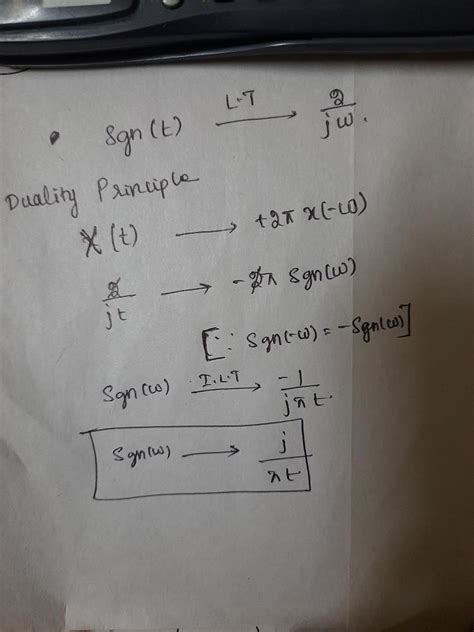 • Sgn(t) L.T → 2/jω.
Duality Principle
X(t) → +2π x(-ω)
2/jt → -2π Sgn(ω)
[∵ Sgn(-ω) = -Sgn(ω)]
Sgn(ω) I.L.T → -1/jπt.
Sgn(ω) → j/πt